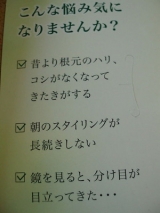 こんな悩み気に
なりませんか？
昔より根元のハリ、
コシがなくなって
きたきがする
朝のスタイリングが
長続きしない
鏡を見ると、分け目が
目立ってきた・・・